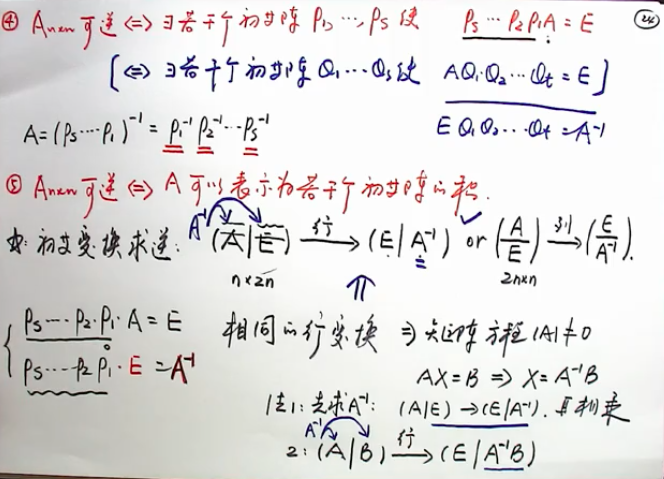 ④ Aₙₓₙ可逆 <=> ∃若干个初等阵 P₁, …, Pₛ 使 Pₛ…P₂P₁A = E
[<=> ∃若干个初等阵 Q₁…Qₛ使 AQ₁·Q₂…Qt = E]
A = (Pₛ…P₁)⁻¹ = P₁⁻¹ P₂⁻¹…Pₛ⁻¹ EQ₁Q₂…Qt = A⁻¹
⑤ Aₙₓₙ可逆 <=> A可以表示为若干个初等阵的积.
☆: 初等变换求逆: A⁻¹ (A|E) 行→ (E|A⁻¹) or (A/E) 列→ (E/A⁻¹).
n×2n 2n×n
⇑
{ Pₛ…P₂·P₁·A = E 相同的行变换 ⇒ 矩阵方程|A|≠0
Pₛ…P₂P₁·E = A⁻¹ AX=B ⇒ X=A⁻¹B
法1: 先求A⁻¹: (A|E) → (E|A⁻¹). 再相乘
A⁻¹
2: (A|B) 行→ (E|A⁻¹B)